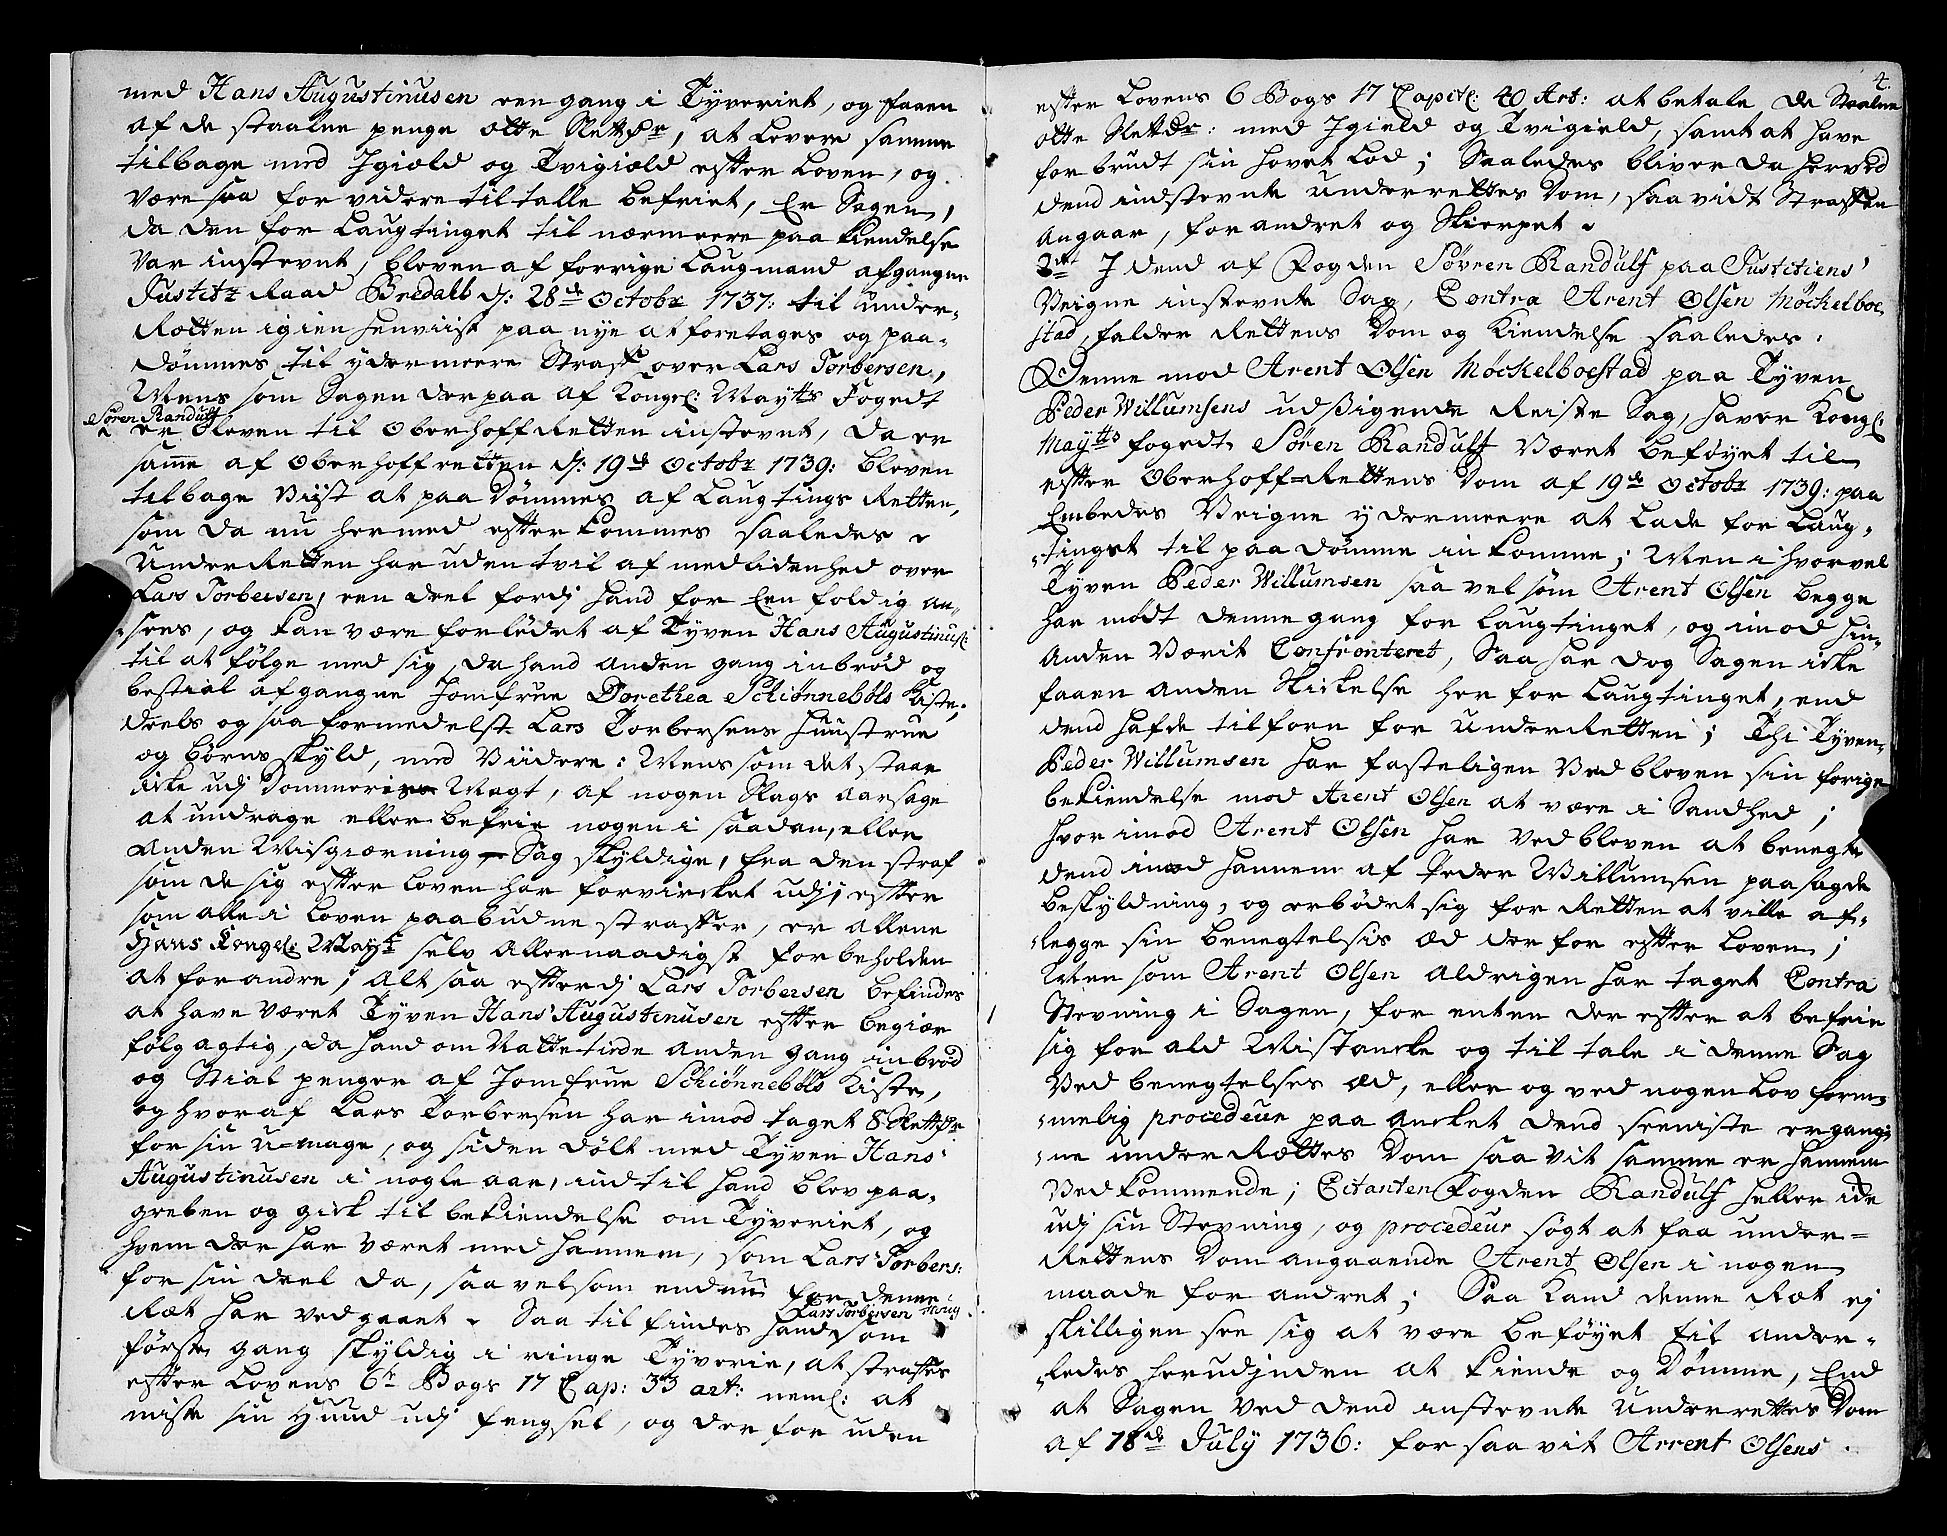 med Hans Augustinusen een gang i Tyveriet, og faaen
af de staalne penge otte Slettdr, at levere samme
tilbage med Jgield og Tvigield efter Loven, og
være saa for videre tiltalle befriet, Er Sagen,
da den for Laugtinget til nærmeere paakiendelse
var instevnt, bleven af forrige Laugmand afgangne
Justitz Raad Bredall d: 28de Octobr 1737: til under-
Rætten igien henviist paa nye at foretages og paa-
dømmes til ydermeere Straf over Lars Torbersen,
Mens som Sagen derpaa af Kongel: Maytts Fogedt
Søren Randulf
er bleven til Oberhoff Retten instevnt, da er
samme af Oberhoffretten d: 19de Octobr 1739: bleven
tilbage Viist at paa Dømmes af Laugtings Retten,
som da nu hermed efterkommes saaledes.
UnderRetten har uden tvil af medlidenhed over
Lars Torbersen, een deel fordj hand for Eenfoldig an-
sees, og kan være forledet af Tyven Hans Augustinus:
til at følge med sig, da hand anden gang inbrød og
bestial afgangne Jomfrue Dorethea Schiønnebøls Kiste,
deels og saa formedelst Lars Torbersens Huustrue
og børns skyld, med Viidere: Mens som det staar
icke udj Dommeri Magt, af nogen Slags aarsage
at undrage eller befrie nogen i saadan, eller
anden Misgierning Sag skyldige, fra den straf
som de sig efter Loven har forvircket udj, efter
som alle i Loven paabudne straffer, er allene
Hans Kongel: Mayt selv allernaadigst forbeholden
at forandre; alt saa efterdj Lars Torbersen befindes
at have været Tyven Hans Augustinusen efter begiær
følgagtig, da hand om Nattetiide anden gang inbrød
og Stial penger af Jomfrue Schiønnebøls Kiste,
og hvoraf Lars Torbersen har imod taget 8 Slettdr
for sin u-mage, og siden dølt med Tyven Hans
Augustinusen i nogle aar, indtil hand blev paa-
greben og gick til bekiendelse om Tyveriet, og
hvem der har været med hannem, som Lars Torbers:
for sin deel da, saavelsom endnu for denne
Ræt har vedgaaet. Saa tilfindes hand Lars Torbersen som
første gang skyldig i ringe Tyverie, at straffes
efter Lovens 6te Bogs 17 Cap: 33 art: neml: at
miste sin Huud udj fengsel, og der for uden
4.
efter Lovens 6 Bogs 17 Capitl: 40 Art: at betale de Staalne
otte Slettdr: med Jgield og Tvigield, samt at have
forbrudt sin hovet Lod; Saaledes bliver da herved
dend indstevnte underrettes Dom, saavidt Straffen
angaar, forandret og Skierpet.
2det J dend af Fogden Søvren Randulf paa Justitiens
Veigne instevnte Sag, Contra Arent Olsen Møckelboe-
stad, falder Rettens Dom og Kiendelse saaledes:
Denne mod Arent Olsen Møckelboestad paa Tyven
Peder Willumsens udsigende Reiste Sag, haver Kongl:
Maytts fogedt Søren Randulf været beføyet til
efter Oberhoff-Rettens Dom af 19de Octobr 1739: paa
Embedes Veigne ydermeere at lade for Laug-
tinget til paadømme inkomme; Men i hvorvel
Tyven Peder Willumsen saa vel som Arent Olsen begge
har mødt denne gang for Laugtinget, og imod hin-
anden Værit Confronteret, Saa har dog Sagen icke
faaen anden Skickelse her for Laugtinget, end
dend hafde tilforn for UnderRetten; Thi Tyven
Peder Willumsen har fasteligen ved bleven sin forige
bekiendelse mod Arent Olsen at være i Sandhed;
hvor imod Arent Olsen har vedbleven at benegte
dend imod hannem af Peder Willumsen paasagde
beskyldning, og erbødet sig for Retten at ville af-
legge sin benegtelsis Æd der for efter Loven;
Men som Arent Olsen aldrigen har taget Contra
Stevning i Sagen, for enten der efter at befrie
sig for ald Mistancke og tiltale i denne Sag
ved benegtelses Æd, eller og ved nogen lov form-
melig procedeur paa ancket dend seeniste ergang-
ne underRættes Dom saa vit samme er hannem
vedkommende; Citanten Fogden Randulf heller icke
udj sin Stevning, og procedeur søgt at faa under-
Rettens Dom angaaende Arent Olsen i nogen
maade forandret; Saa Kand denne Ræt ej
skilligen see sig at være beføyet til ander-
ledes herudjnden at kiende og dømme, End
at Sagen ved dend instevnte Underrettes Dom
af 18de July 1736: forsaavit Arrent Olsens